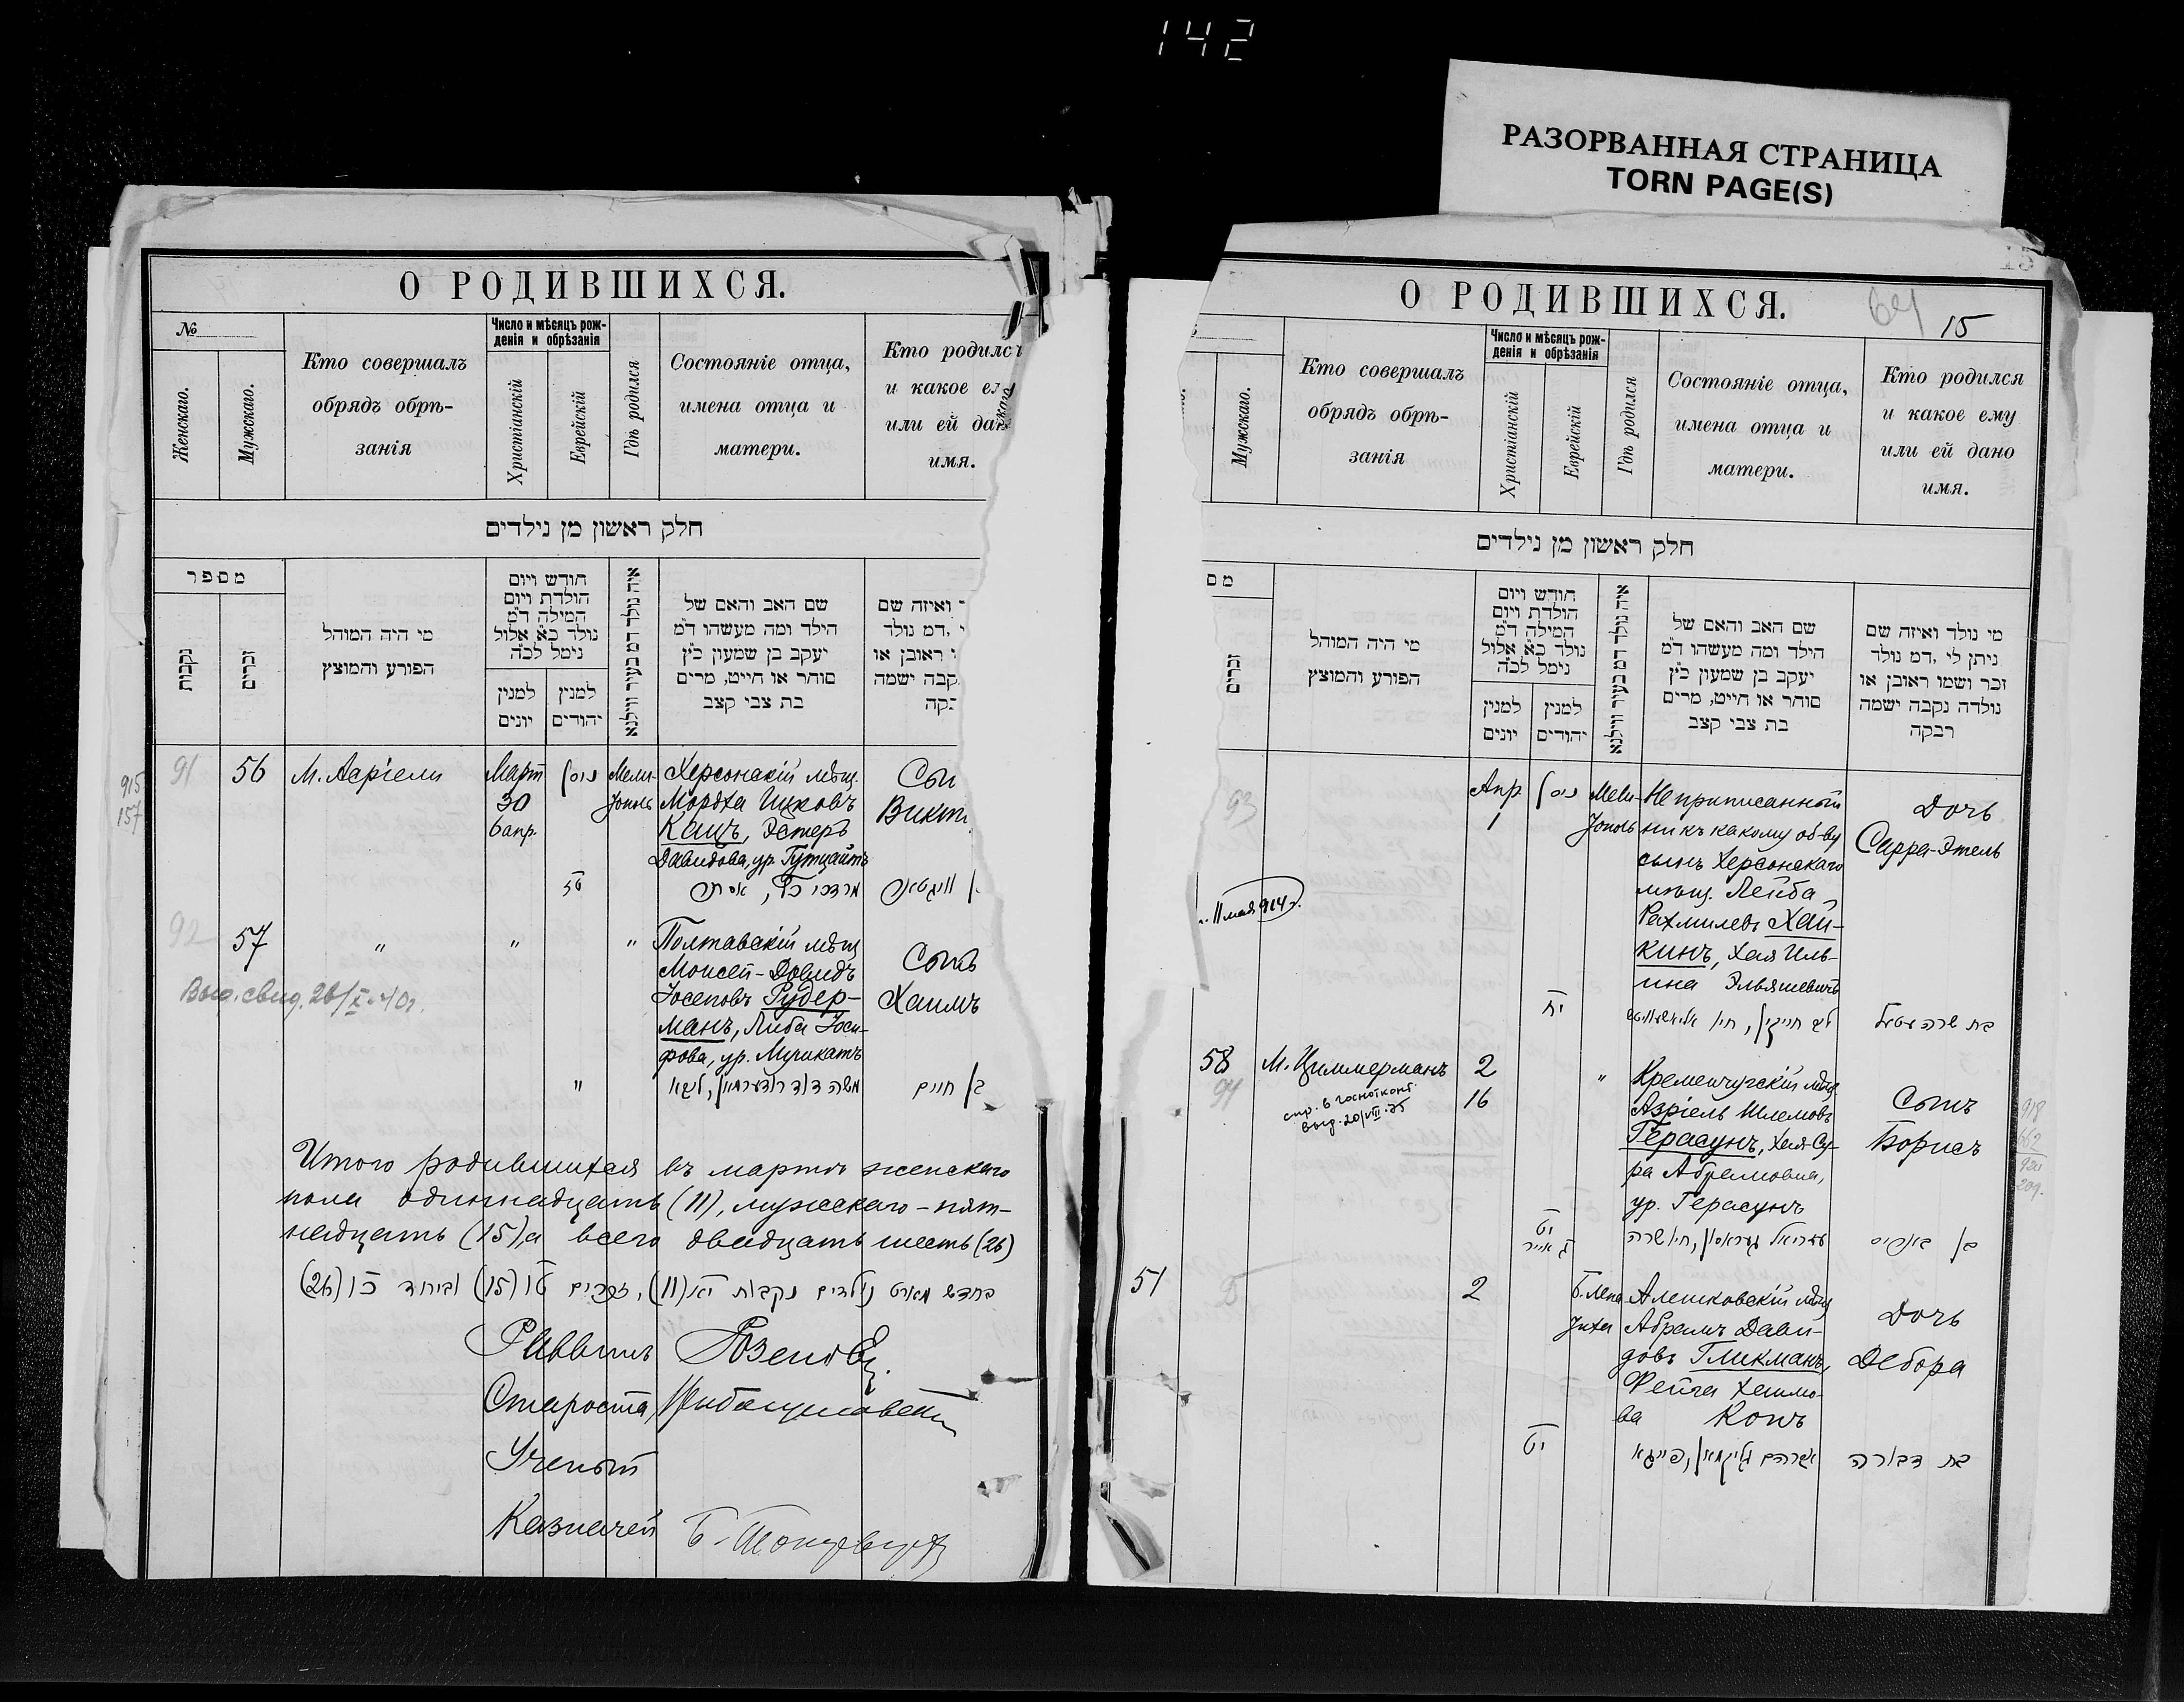 142
РАЗОРВАННАЯ СТРАНИЦА
TORN PAGE(S)
О РОДИВШИХСЯ.
№
Женскаго.
Мужскаго.
Кто совершалъ
обрядъ обрѣ-
занія
Число и мѣсяцъ рож-
денія и обрѣзанія
Христіанскій
Еврейскій
Гдѣ родился
Состояніе отца,
имена отца и
матери.
Кто родился
и какое
или ей
имя.
חלק ראשון מן נילדים
מספר
נקבות
זכרים
מי היה המוהל
הפורע והמוצץ
חודש ויום
הולדת ויום
המילה ד״מ
נולד כ״א אלול
נימל לכ״ה
למנין
יונים
למנין
יהודים
איה נולד דמ בעיר ווילנא
שם האב והאם של
הילד ומה מעשהו ד״מ
יעקב בן שמעון כ״ץ
סוחר או חייט, מרים
בת צבי קצב
ואיזה שם
דמ נולד
ראובן או
ישמה
915
157
91
56
М. Азріели
Март
30
6 апр.
ניסן
Мели-
тополь
Херсонскій мѣщ.
Мордха Ицковъ
Кацъ, Эстеръ
Давидова, ур. Гутцайтъ
Сы
Викт
מרדכי כץ, אסתר
92
57
"
"
"
Полтавскій мѣщ
Моисей-Довидъ
Іосеповъ Рудер-
манъ, Либа Іоси-
фова, ур.
Сынъ
Хаимъ
Выд. свид. 26/X-40г.
"
משה דוד רודערמאן, ליבא
בן חיים
Итого родившихся въ мартѣ женскаго
пола одиннадцать (11), мужескаго - пят-
надцать (15), а всего двадцать шесть (26)
בחדש מארט נולדים נקבות יא (11), זכרים טו (15) וביחד כו (26)
Раввинъ
Староста
Ученый
Казначей
О РОДИВШИХСЯ.
64
15
15
Мужскаго.
Кто совершалъ
обрядъ обрѣ-
занія
Число и мѣсяцъ рож-
денія и обрѣзанія
Христіанскій
Еврейскій
Гдѣ родился
Состояніе отца,
имена отца и
матери.
Кто родился
и какое ему
или ей дано
имя.
חלק ראשון מן נילדים
מס
זכרים
מי היה המוהל
הפורע והמוצץ
חודש ויום
הולדת ויום
המילה ד״מ
נולד כ״א אלול
נימל לכ״ה
למנין
יונים
למנין
יהודים
איה נולד דמ בעיר ווילנא
שם האב והאם של
הילד ומה מעשהו ד״מ
יעקב בן שמעון כ״ץ
סוחר או חייט, מרים
בת צבי קצב
מי נולד ואיזה שם
ניתן לי ,דמ נולד
זכר ושמו ראובן או
נולדה נקבה ישמה
רבקה
93
Апр
1
ניסן
Мели-
тополь
Не приписанный
ни къ какому об-ву
сынъ Херсонскаго
мѣщ. Лейба
Рахмилевъ Хай-
кинъ, Хая Иль-
ина Эльяшевичъ
Дочь
Сарра-Этель
11 мая 914 г.
יח
בת שרה עטעל
58
94
М. Циммерманъ
2
16
"
Кременчугскій мѣщ.
Азріель Шлемовъ
Герасунъ, Хая-Су-
ра Абрамовна,
ур. Герасунъ
Сынъ
Борисъ
выд. 20/VIII-35
918
יט
עזריאל געראסון, חיה שרה
51
2
Б. Лепа
тиха
Алешковскій мѣщ
Абрамъ Дави-
довъ Гликманъ,
Фейга Хаимо-
ва Конъ
Дочь
Дебора
יט
אברהם גליקמאן, פייגא
בת דבורה